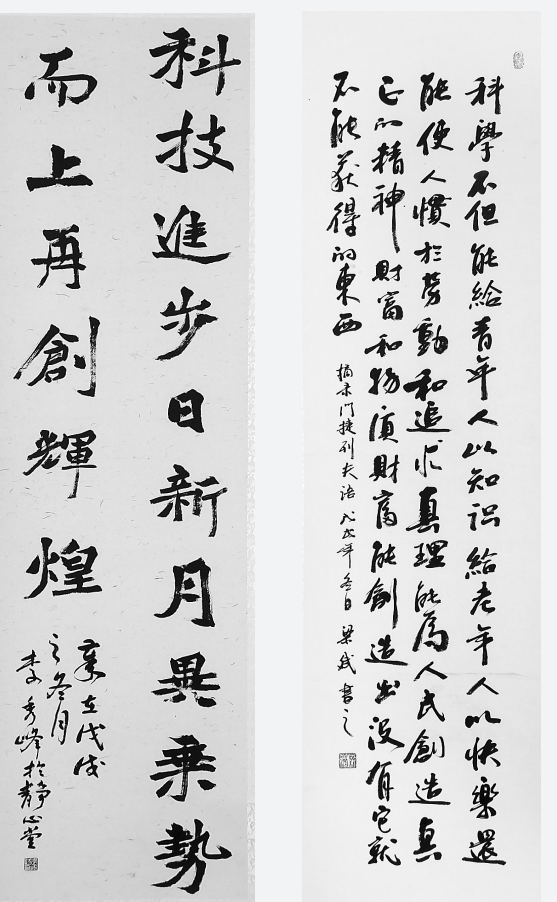 科技進步日新月異乘勢
而上再創輝煌
歲在戊戌
之冬月
李秀峰於靜心堂
科學不但能給青年人以知识給老年人以快樂還
能使人慣於勞動和追求真理能為人民創造真
正的精神財富和物質財富能創造出没有它就
不能獲得的東西
摘录门捷列夫语 戊戌年冬日 梁 書之